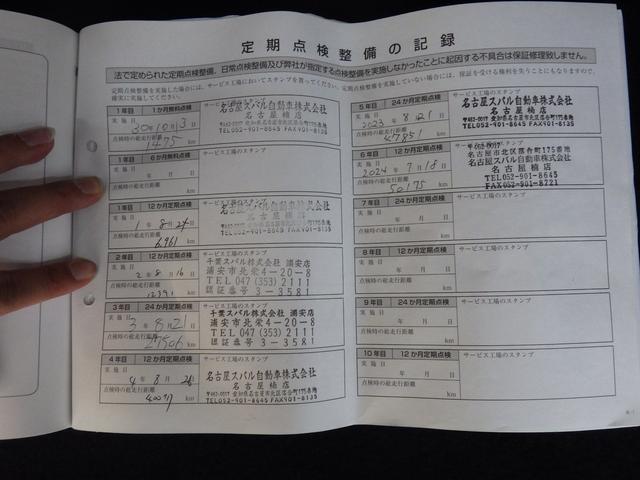 定期点検整備の記録
法で定められた定期点検整備、日常点検整備及び弊社が指定する点検整備を実施しなかったことに起因する不具合は保証修理致しません。
定期点検整備を実施した場合は、サービス工場においてスタンプを貰ってください。定期点検整備を実施していない場合には、保証を受ける権利を失うこともなりますので、
確実に実施してください。
1年目 1か月無料点検 サービス工場のスタンプ
実施日
30年10月3日
点検時の総走行距離
1475 km
名古屋スバル自動車株式会社
名古屋楠店
TEL052-901-8645 FAX901-8135
1年目 6か月無料点検 サービス工場のスタンプ
実施日
年 月 日
点検時の総走行距離
km
1年目 12か月定期点検 サービス工場のスタンプ
実施日
1年8月24日
点検時の総走行距離
6961 km
名古屋スバル自動車株式会社
名古屋楠店
TEL052-901-8645 FAX901-8135
2年目 12か月定期点検 サービス工場のスタンプ
実施日
2年8月16日
点検時の総走行距離
12391 km
千葉スバル株式会社 浦安店
浦安市北栄4-20-8
TEL 047 (353) 2111
認証番号 3-3581
3年目 24か月定期点検 サービス工場のスタンプ
実施日
3年8月21日
点検時の総走行距離
km
千葉スバル株式会社 浦安店
浦安市北栄4-20-8
TEL 047 (353) 2111
認証番号 3-3581
4年目 12か月定期点検 サービス工場のスタンプ
実施日
4年8月
日
点検時の総走行距離
km
名古屋スバル自動車株式会社
名古屋楠店
TEL052-901-8645 FAX901-8135
5年目 24か月定期点検 サービス工場のスタンプ
実施日
2023年8月21日
点検時の総走行距離
47851 km
名古屋スバル自動車株式会社
名古屋楠店
TEL052-901-8645 FAX901-8135
6年目 12か月定期点検 サービス工場のスタンプ
実施日
2024年7月18日
点検時の総走行距離
50175 km
名古屋スバル自動車株式会社
名古屋楠店
TEL052-901-8645
FAX052-901-8721
7年目 24か月定期点検 サービス工場のスタンプ
実施日
年 月 日
点検時の総走行距離
km
8年目 12か月定期点検 サービス工場のスタンプ
実施日
年 月 日
点検時の総走行距離
km
9年目 24か月定期点検 サービス工場のスタンプ
実施日
年 月 日
点検時の総走行距離
km
10年目 12か月定期点検 サービス工場のスタンプ
実施日
年 月 日
点検時の総走行距離
km